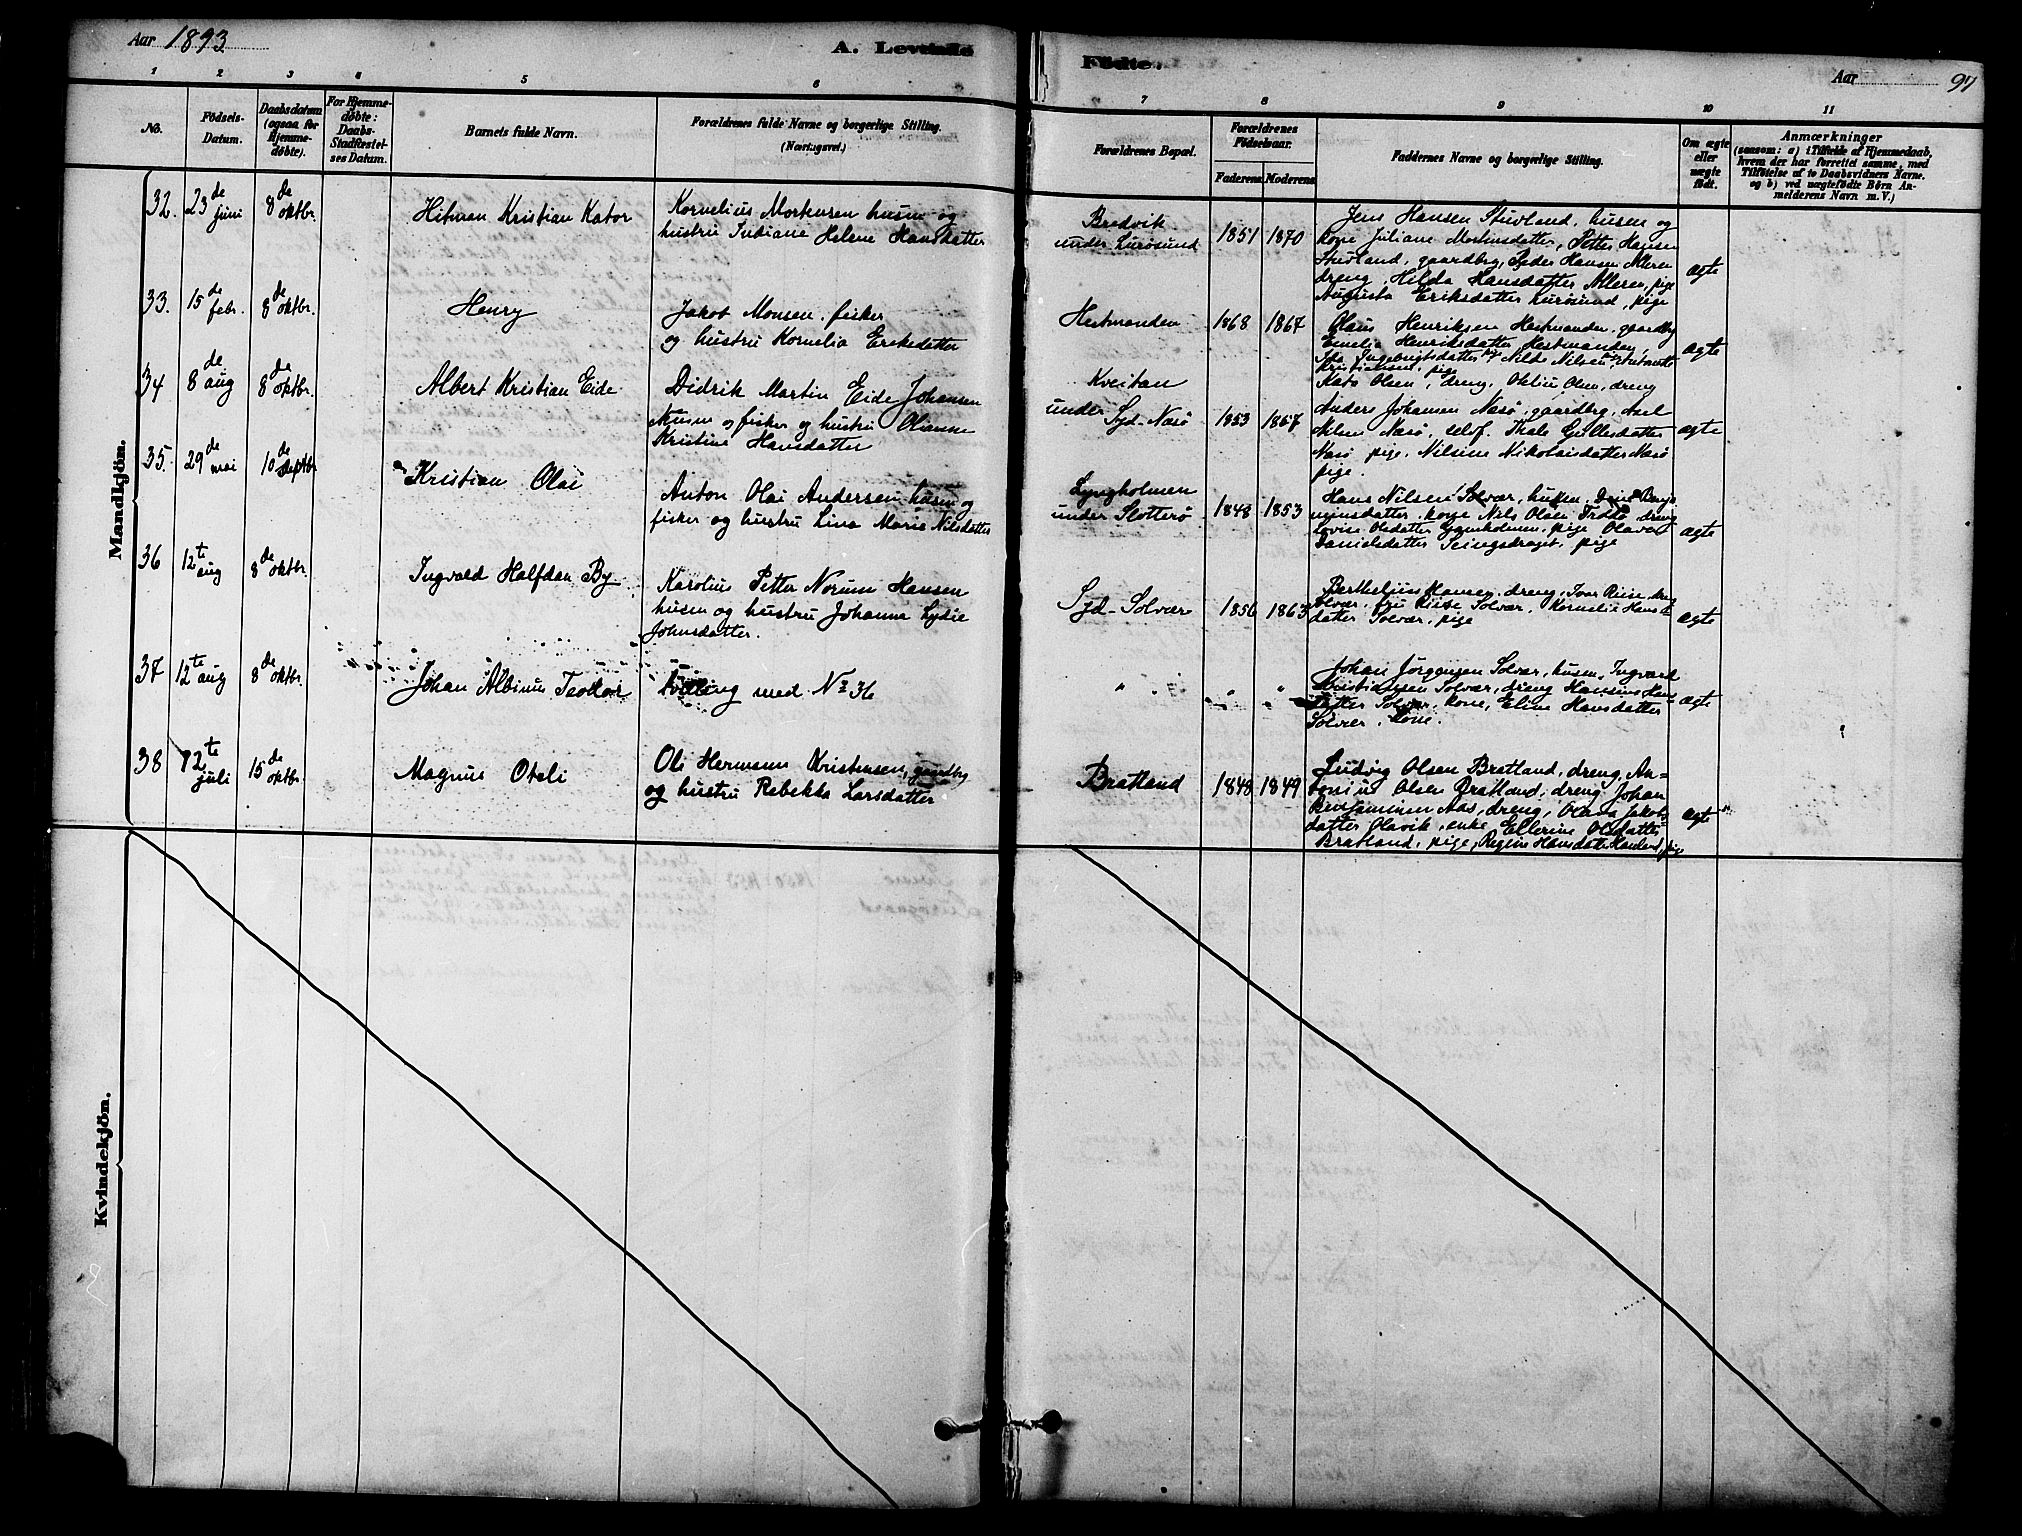 Aar 1893
A. Levende
Födte.
Aar
97
1 2 3 4 5 6 7 8 9 10 11
No.
Födsels-
Datum.
Daabsdatum
(ogsaa for
Hjemme-
döbte).
For Hjemme-
döbte:
Daabs-
Stadfæstel-
ses Datum.
Barnets fulde Navn.
Forældrenes fulde Navne og borgerlige Stilling.
(Næringsvei.)
Forældrenes Bopæl.
Forældrenes
Födselsaar.
Faderens. Moderens.
Faddernes Navne og borgerlige Stilling.
Om ægte
eller
uægte
födt.
Anmærkninger
(saasom: a) i Tilfælde af Hjemmedaab,
hvem der har forrettet samme, med
Tilföielse af to Daabsvidners Navne.
og b) ved uægtefödte Börn An-
melderens Navn m. V.)
Mandkjön.
32. 23de juni 8de oktbr. Hitman Kristian Kator
Kornelius Mortensen husm og
hustru Indiane Helene Hansdatter
Bredvik
under Lurøsund
1851 1870
Jens Hansen Stuvland, husm og
kone Juliane Mortensdatter, Petter Hansen
Stuvland, gaardbrg, Peder Hansen
dreng, Hilda Hansdatter, pige
Augusta Eriksdatter Lurøsund, pige
ægte
33. 15de febr. 8de oktbr. Henry
Jakob Monsen, fisker
og hustru Kornelia Eriksdatter
Hestmanden
1868 1867
Olaus Henriksen Hestmanden, gaardbrg
Emelie Henriksdatter Hestmanden,
Ida Ingebrigtsdatter Nilsen
Kristiansen, pige
ægte
34 8de aug 8de oktbr. Albert Kristian Eide
Didrik Martin Eide Johansen
husm og fisker og hustru Olianne
Kristine Hansdatter
Kveitan
under Syd-Nesø
1853 1857
Olsen, dreng, Olsen, dreng
Anders Johansen Nesø, gaardbrg, Axel
Nilsen Nesø, selvf.
Nesø pige, Nilsine Nikolaisdatter Nesø
pige.
ægte
35. 29de mai 10de septbr Kristian Olai
Anton Olai Andersen husm og
fisker og hustru Lina Marie Nilsdatter
Lyngholmen
under Slotterø
1848 1853
Hans Nilsen Solvær, husm,
minsdatter, kone Nils Olsen dreng
Lovise Olsdatter Lyngholmen, pige Olava
Danielsdatter, pige
ægte
36 12te aug 8de oktbr. Ingvald Halfdan By
Karolius Petter Norum Hansen
husm og hustru Johanna Lydie
Johnsdatter.
Syd-Solvær
1856 1863
Berthelius Hansen, dreng, Iver
Solvær, Solvær, Kornelia Hans-
datter Solvær, pige
ægte
37 12te aug 8de oktbr. Johan Albinus Teodor
Tvilling med No 36
" " " "
Johan Jørgensen Solvær, husm, Ingvard
Kristiansen Solvær, dreng Hansine Hans-
datter Solvær, kone, Eline Hansdatter
Solvær, kone.
ægte
38 12te juli 15de oktbr. Magnus Oteli
Ole Hermann Kristensen, gaardbrg
og hustru Rebekka Larsdatter
Bratland
1848 1849
Ludvig Olsen Bratland, dreng, An-
tonius Olsen Bratland, dreng, Johan
Benjaminsen Aas, dreng, Olava Jakobs-
datter Olavik, enke, Ellerine Olsdatter
Bratland, pige, Regine Hansdatter, pige
ægte
Kvindekjön.